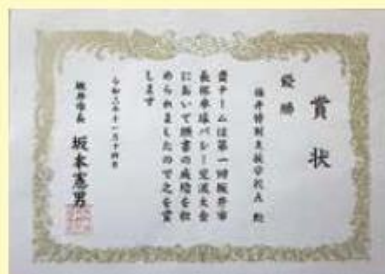 賞状
優勝
福井特別支援学校A 殿
貴チームは第一回坂井市
長杯卓球バレー交流大会
において頭書の成績を収
められましたので之を賞
します
令和三年十一月十四日
坂井市長 坂本憲男